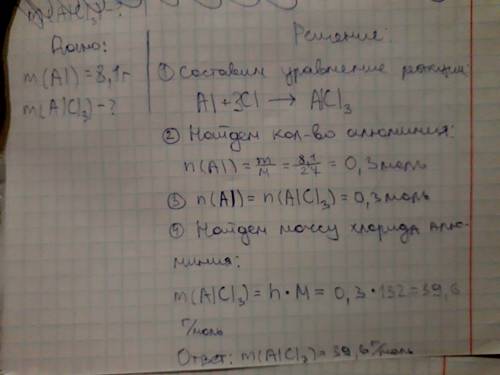 m(AlCl₃)-?
Дано:
m(Al) = 8,1г
m(AlCl₃) - ?
Решение:
① Составим уравнение реакции:
Al + 3Cl → AlCl₃
② Найдем кол-во алюминия:
n(Al) = m/M = 8,1/27 = 0,3 моль
③ n(Al) = n(AlCl₃) = 0,3 моль
④ Найдем массу хлорида алю-
миния:
m(AlCl₃) = n · M = 0,3 · 132 = 39,6
г/моль
Ответ: m(AlCl₃) = 39,6 г/моль